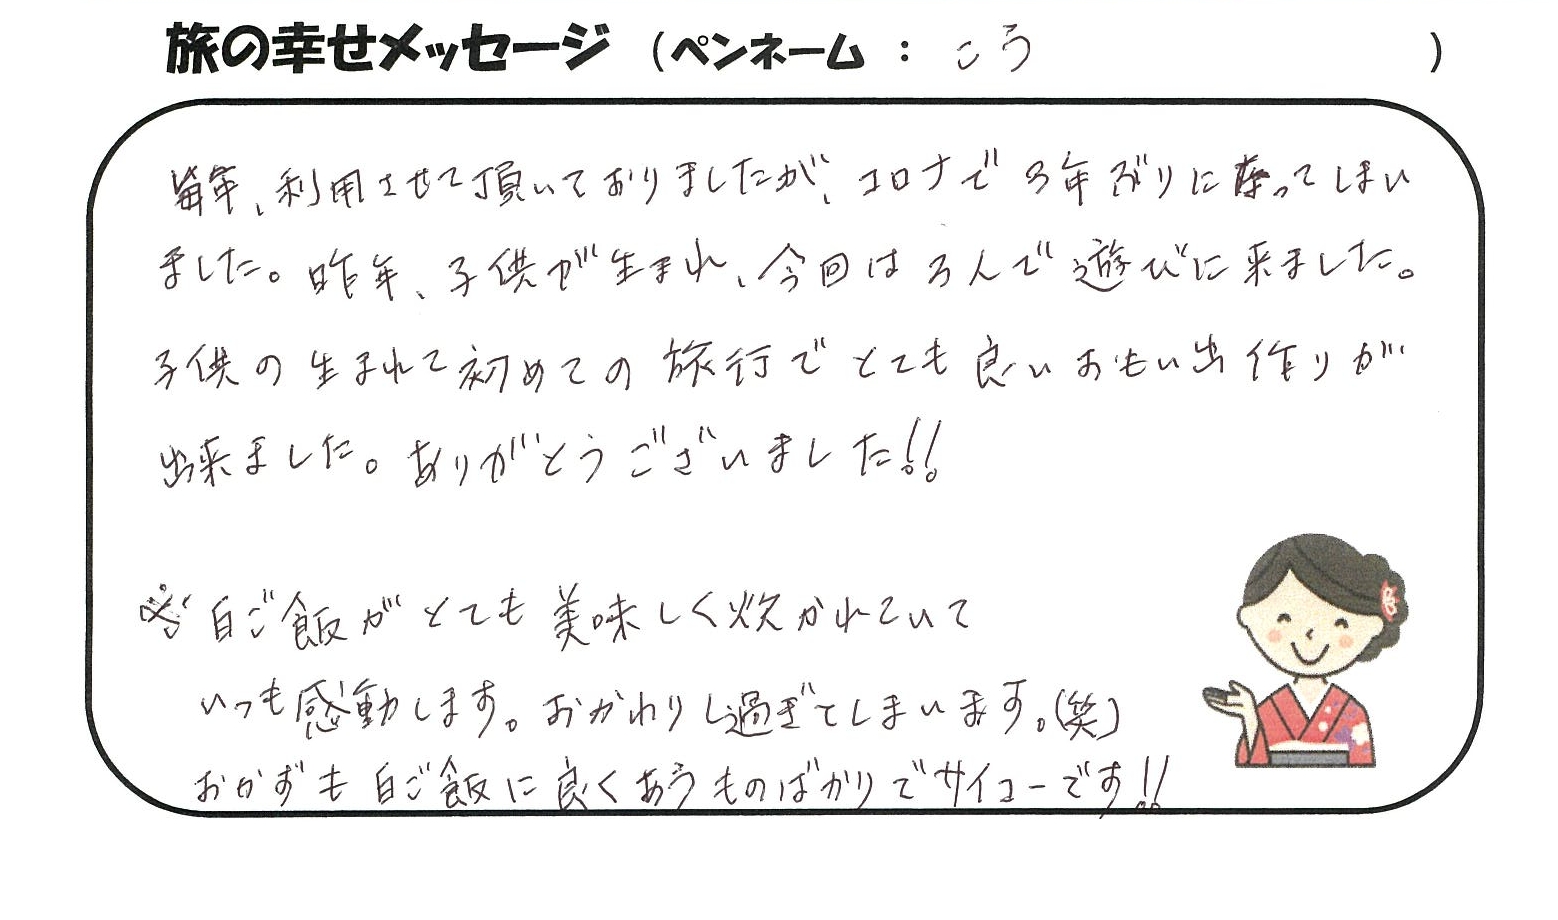 旅の幸せメッセージ (ペンネーム : こう )
毎年、利用させて頂いておりましたが、コロナで3年ぶりに なってしまい
ました。昨年、子供が生まれ、今回は3人で遊びに来ました。
子供の生まれて初めての旅行でとても良いおもい出作りが
出来ました。ありがとうございました!!
※白ご飯がとても美味しく炊かれていて
いつも感動します。おかわりし過ぎてしまいます。(笑)
おかずも白ご飯に良くあうものばかりでサイコーです!!